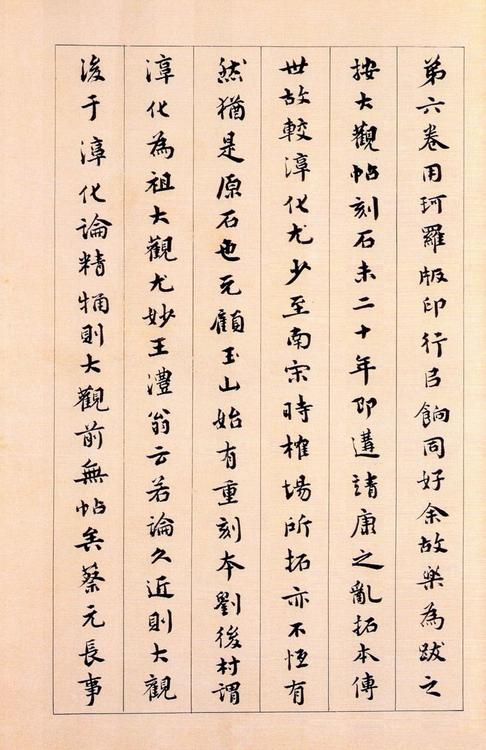 第六卷用珂羅版印行以餉同好余故樂為跋之
按大觀帖刻石未二十年即遘靖康之亂拓本傳
世故較淳化尤少至南宋時榷場所拓亦不恆有
然猶是原石也元顧玉山始有重刻本劉後村謂
淳化為祖大觀尤妙王澧翁云若論久近則大觀
後于淳化論精犕則大觀前無帖矣蔡元長事